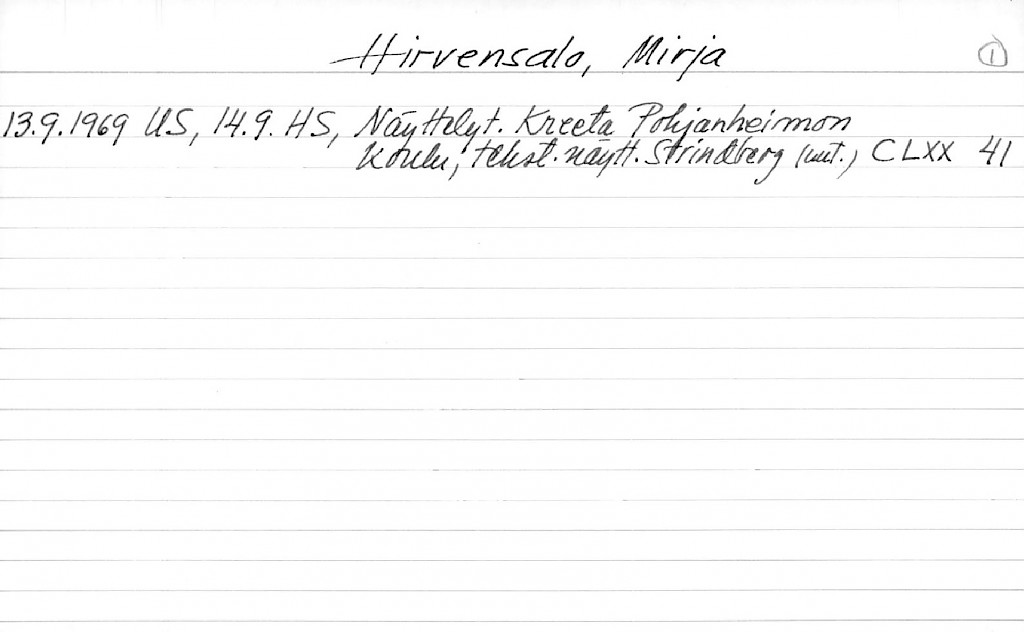 Hirvensalo, Mirja 1
13.9.1969 US, 14.9. HS, Näyttelyt. Kreeta Pohjanheimon
koulu, tekst. näytt. Strindberg (uut.) CLXX 41